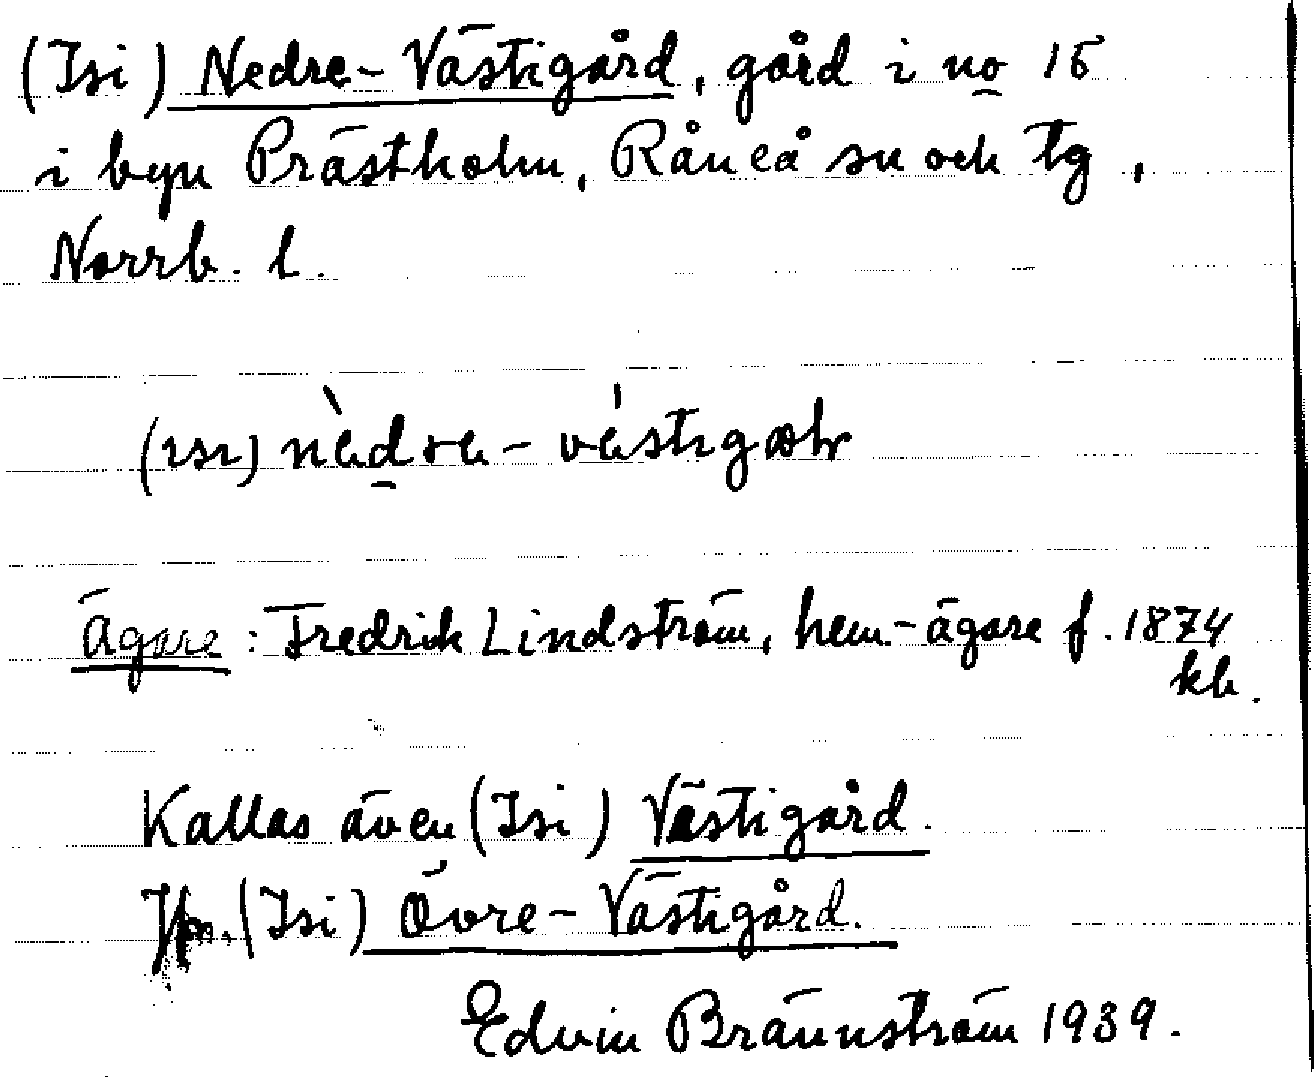 (Isi) Nedre-Västigård, gård i no 15
i byn Prästholm, Råneå sn och tg,
Norrb. l.
(ısı) nèdre-véstıgɷr
Ägare: Fredrik Lindström, hem.-ägare f. 1874
kb.
Kallas även (Isi) Västigård.
Jfr. (Isi) Övre-Västigård.
Edvin Brännström 1939.